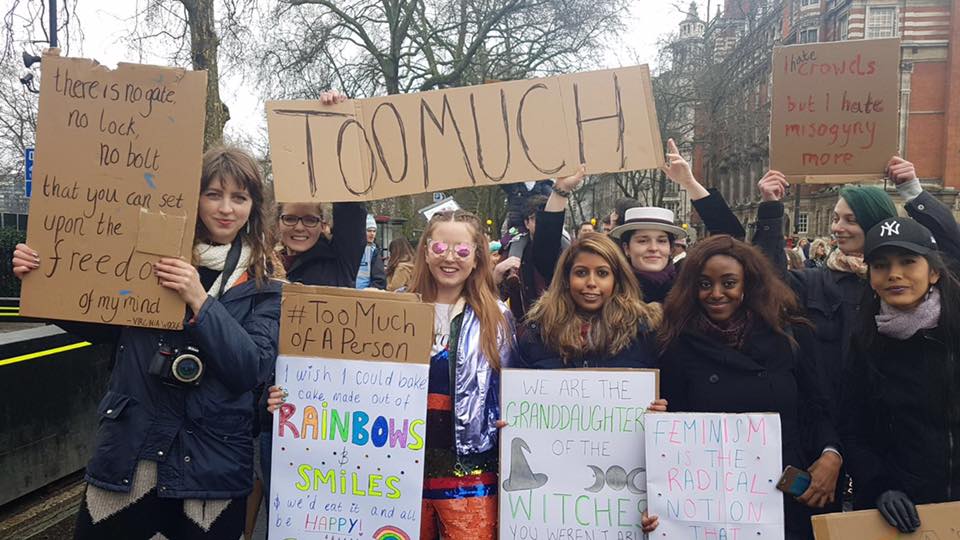 there is no gate,
no lock,
no bolt
that you can set
upon the
freedo
of my mind
-VIRGINIA WOOLF
TOO MUCH
I hate crowds
but I hate
misogyny
more
#TooMuch
of A Person
I wish I could bake
cake made out of
RAINBOWS
&
SMILES
& we'd eat it and all
be HAPPY!
WE ARE THE
GRANDDAUGHTER
OF THE
WITCHES
YOU WEREN'T ABL
FEMINISM
IS THE
RADICAL
NOTION
THAT
NY